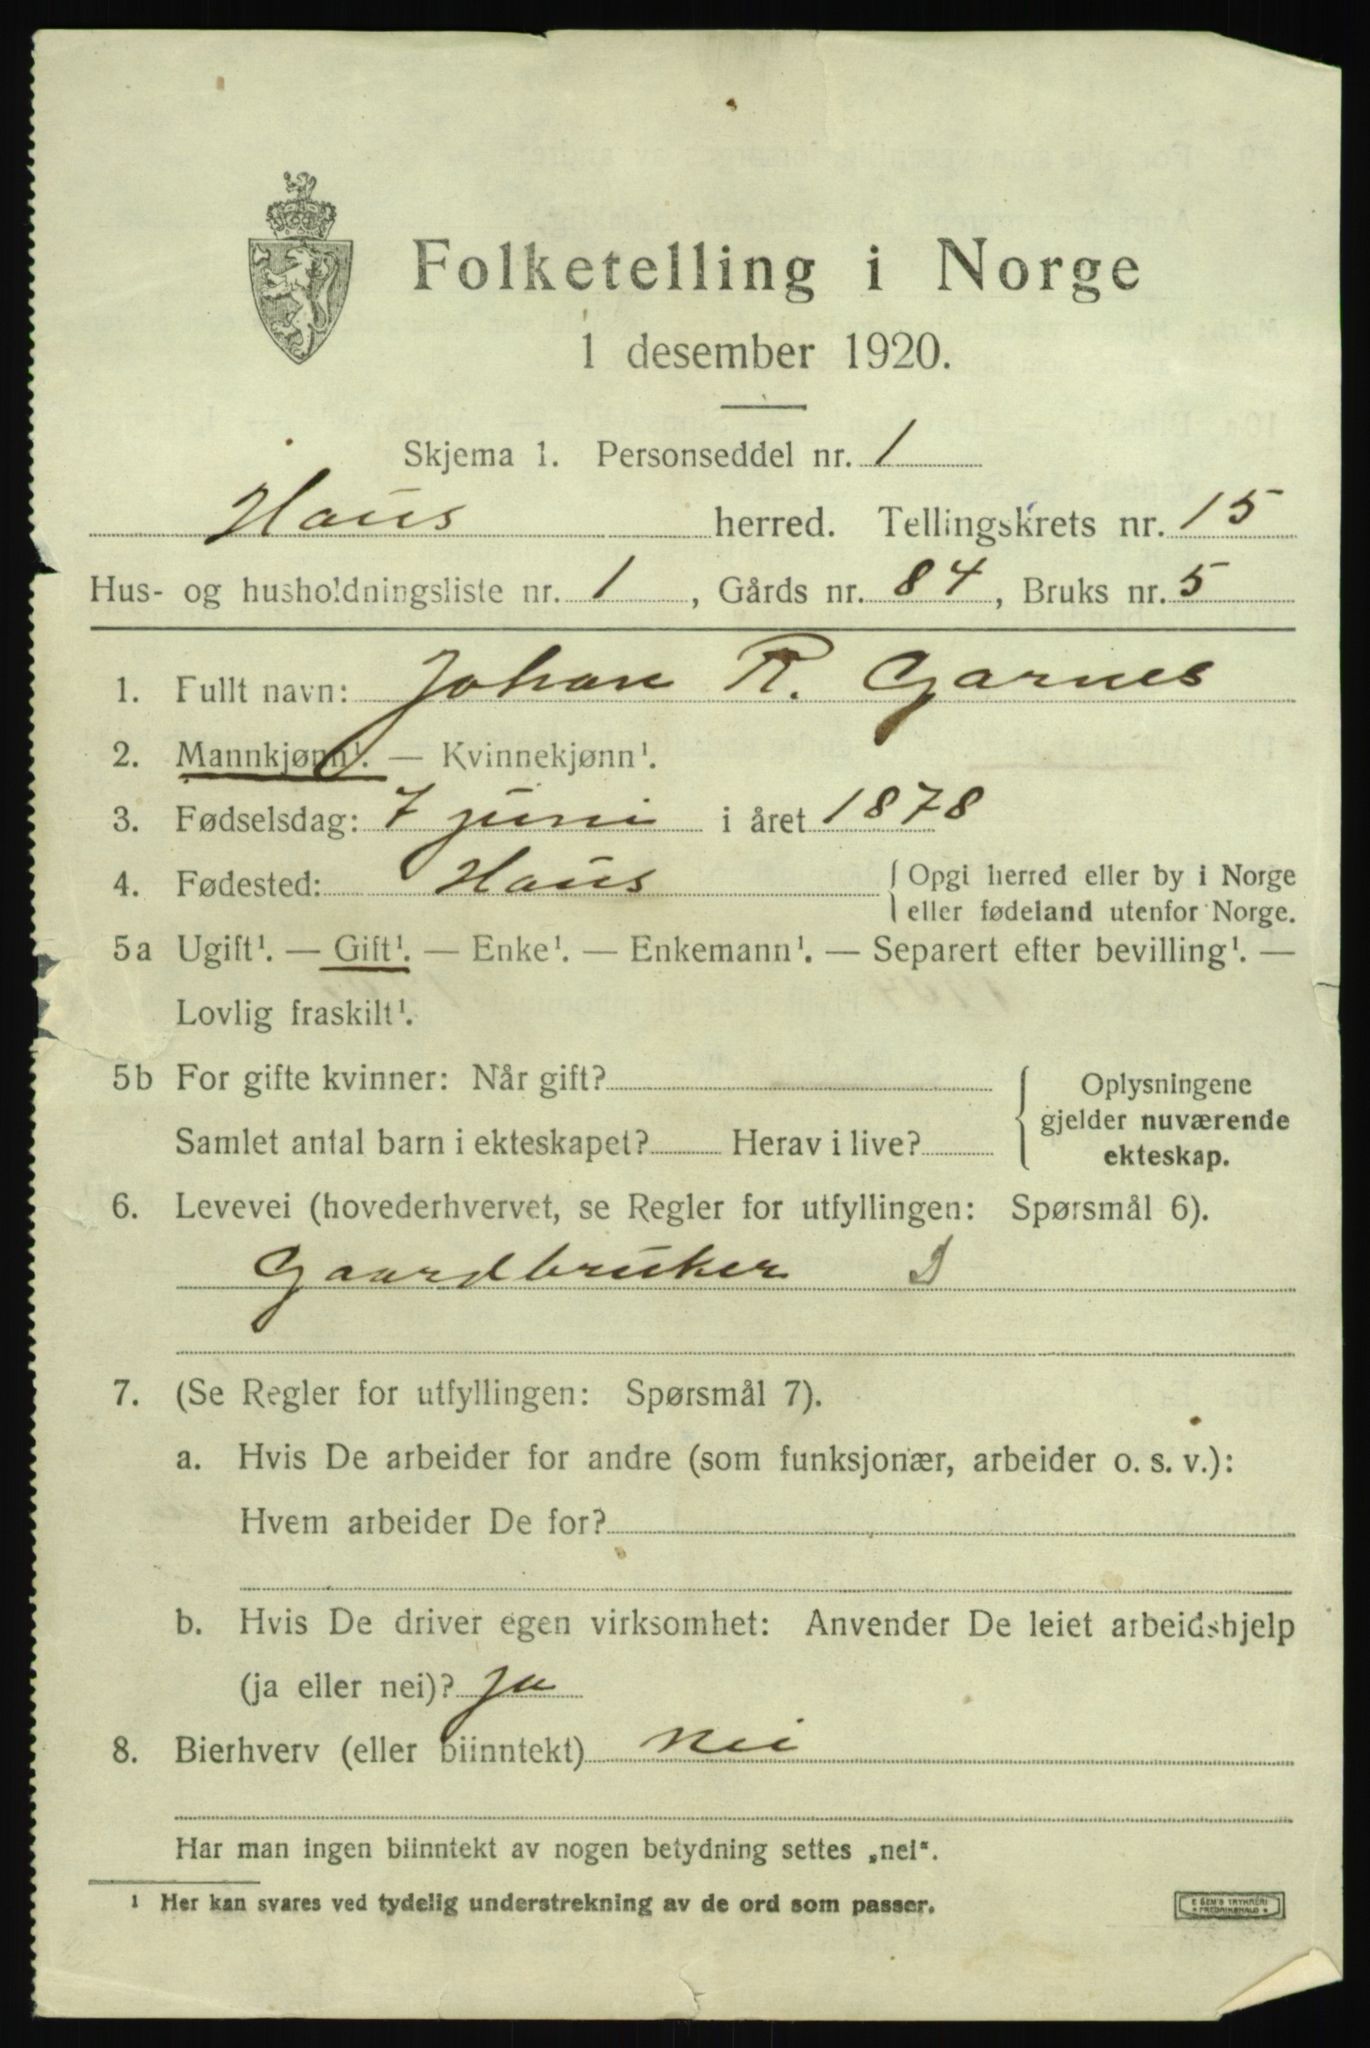 Folketelling i Norge
1 desember 1920.
Skjema 1. Personseddel nr. 1
Haus herred. Tellingskrets nr. 15
Hus- og husholdningsliste nr. 1, Gårds nr. 84, Bruks nr. 5
1. Fullt navn: Johan R. Garnes
2. Mannkjønn¹. — Kvinnekjønn¹.
3. Fødselsdag: 7 juni i året 1878
4. Fødested: Haus { Opgi herred eller by i Norge
eller fødeland utenfor Norge.
5a Ugift¹. — Gift¹. — Enke¹. — Enkemann¹. — Separert efter bevilling¹. —
Lovlig fraskilt¹.
5b For gifte kvinner: Når gift? { Oplysningene
gjelder nuværende
Samlet antal barn i ekteskapet? Herav i live?
ekteskap.
6. Levevei (hovederhvervet, se Regler for utfyllingen: Spørsmål 6).
Gaardbruker
7. (Se Regler for utfyllingen: Spørsmål 7).
a. Hvis De arbeider for andre (som funksjonær, arbeider o. s. v.):
Hvem arbeider De for?
b. Hvis De driver egen virksomhet: Anvender De leiet arbeidshjelp
(ja eller nei)? Ja
8. Bierhverv (eller biinntekt) Nei
Har man ingen biinntekt av nogen betydning settes „nei“.
¹ Her kan svares ved tydelig understrekning av de ord som passer.
E SEM'S TRYKKERI
FREDRIKSHALD